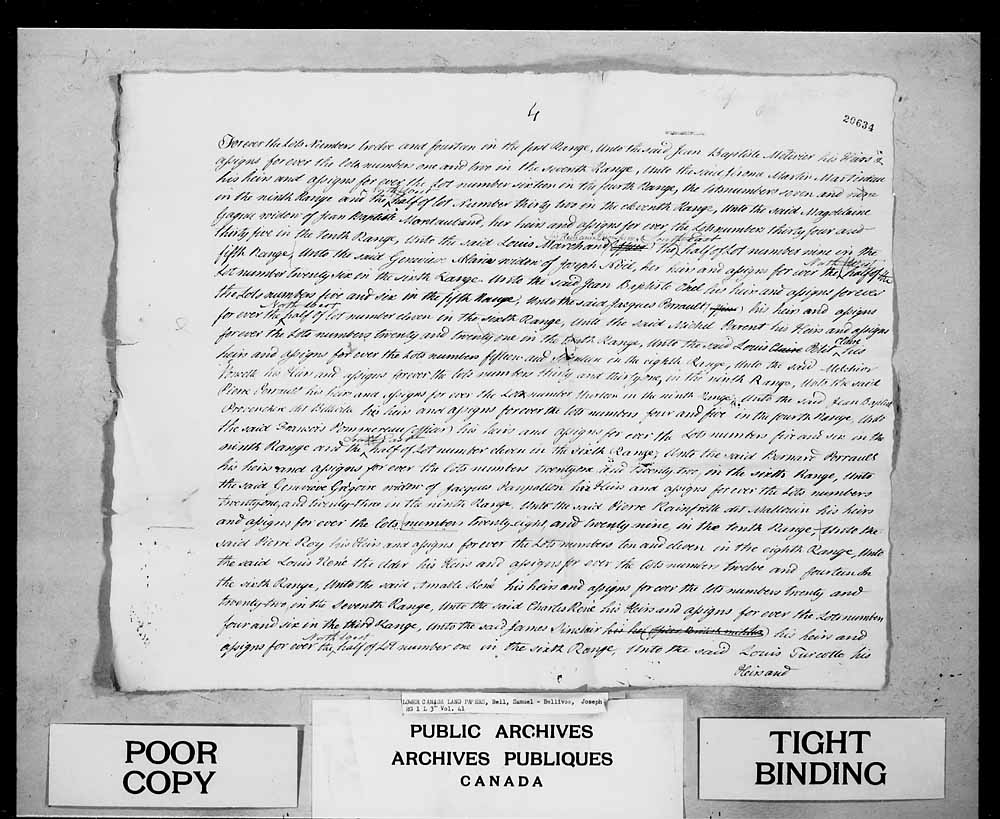 4
20634
Forever the Lots Numbers twelve and fourteen in the first Range, Unto the said Jean Baptiste Metivier his Heirs &
assigns forever the lots numbers one and two in the seventh Range, Unto the said Jerome Martin Martineau
his heirs and assigns for ever the Lot number sixteen in the fourth Range, the lots numbers seven and nine
in the ninth Range and the half of lot Number thirty two in the eleventh Range, Unto the said Magdelaine
Gagné widow of Jean Baptiste her heirs and assigns for ever, the Lots number thirty four and
thirty five in the tenth Range, Unto the said Louis Marchand
South East
the half of Lot number nine in the
fifth Range, Unto the said Genevieve widow of Joseph her heirs and assigns for ever the
North West
half of the
Lot number twenty six in the sixth Range. Unto the said Jean Baptiste his heirs and assigns for ever
the Lots numbers five and six in the fifth Range, Unto the said Jacques Perrault his heirs and assigns
North West
for ever the half of lot number eleven in the sixth Range, Unto the said Michel Parent his Heirs and assigns
for ever the Lots numbers twenty and twenty one in the tenth Range, Unto the said Louis
heirs and assigns for ever the Lots numbers fifteen and in the eighth Range, Unto the said Melchior
his Heirs and assigns forever the lots numbers thirty and thirty one, in the ninth Range, Unto the said
Pierre Perrault his heirs and assigns for ever the Lot number thirteen in the ninth Range, Unto the said Jean Baptist
Provencher his heirs and assigns for ever the lots numbers four and five in the fourth Range, Unto
the said Francois Pommereau (officer) his heirs and assigns for ever the Lots numbers five and six in the
South East
ninth Range and the half of Lot number eleven in the sixth Range, Unto the said Bernard Perrault
his heirs and assigns for ever the lots numbers twenty one and twenty two, in the sixth Range, Unto
the said Genevieve Grégoire widow of Jacques her Heirs and assigns for ever the Lots numbers
twenty one, and twenty three in the ninth Range, Unto the said Pierre Rainfrette dit Mallouin his heirs
and assigns for ever the lots numbers twenty eight and twenty nine, in the tenth Range, Unto the
said Pierre Roy his Heirs and assigns for ever the Lots numbers ten and eleven in the eighth Range, Unto
the said Louis René the elder his Heirs and assigns for ever the lots number twelve and fourteen In
the sixth Range, Unto the said Amable René his heirs and assigns for ever the lots numbers twenty and
twenty two, in the Seventh Range, Unto the said Charles René his Heirs and assigns for ever the Lots number
four and six in the third Range, Unto the said James Sinclair his heirs and
North West
assigns for ever the half of Lot number one in the sixth Range, Unto the said Louis Turcotte his
Heirs and
LOWER CANADA LAND PAPERS, Bell, Samuel - Bellivoo, Joseph
RG 1 L 3 Vol. 41
PUBLIC ARCHIVES
ARCHIVES PUBLIQUES
CANADA
POOR
COPY
TIGHT
BINDING